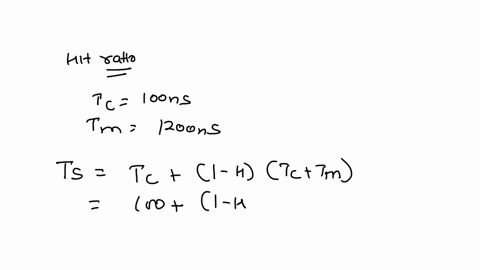 Hit ratio
Tc = 100ns
Tm = 1200ns
Ts = Tc + (1-H) (Tc+Tm)
= 100 + (1-H